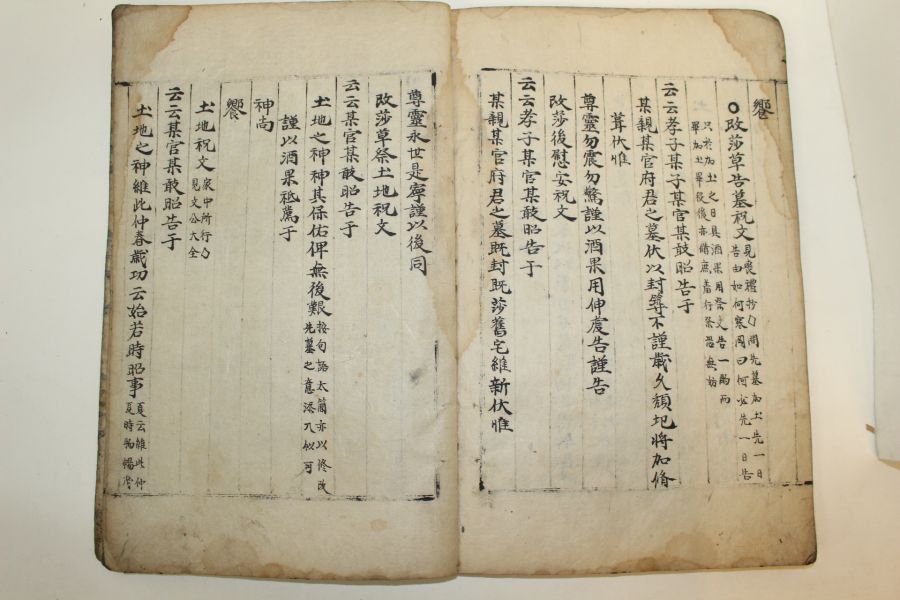 饗
○改莎草告墓祝文 見喪禮抄 問先墓加土先一日
告由如何寒岡曰何必先一日告
只於加土之日具酒果用祭文告一酌而
畢加土畢後亦備庶羞行祭恐無妨
云云孝子某子某官某敢昭告于
某親某官府君之墓伏以封築不謹歲久頹圮將加脩
葺伏惟
尊靈勿震勿驚謹以酒果用伸虔告謹告
改莎後慰安祝文
云云孝子某官某敢昭告于
某親某官府君之墓旣封旣莎舊宅維新伏惟
尊靈永世是寧謹以後同
改莎草祭土地祝文
云云某官某敢昭告于
土地之神神其保佑俾無後艱 按句語太簡亦以修改
先墓之意添入似可
謹以酒果祗薦于
神尙
饗
土地祝文 家中所行
見文公大全
云云某官某敢昭告于
土地之神維此仲春歲功云始若時昭事 夏云維此仲
夏時物暢